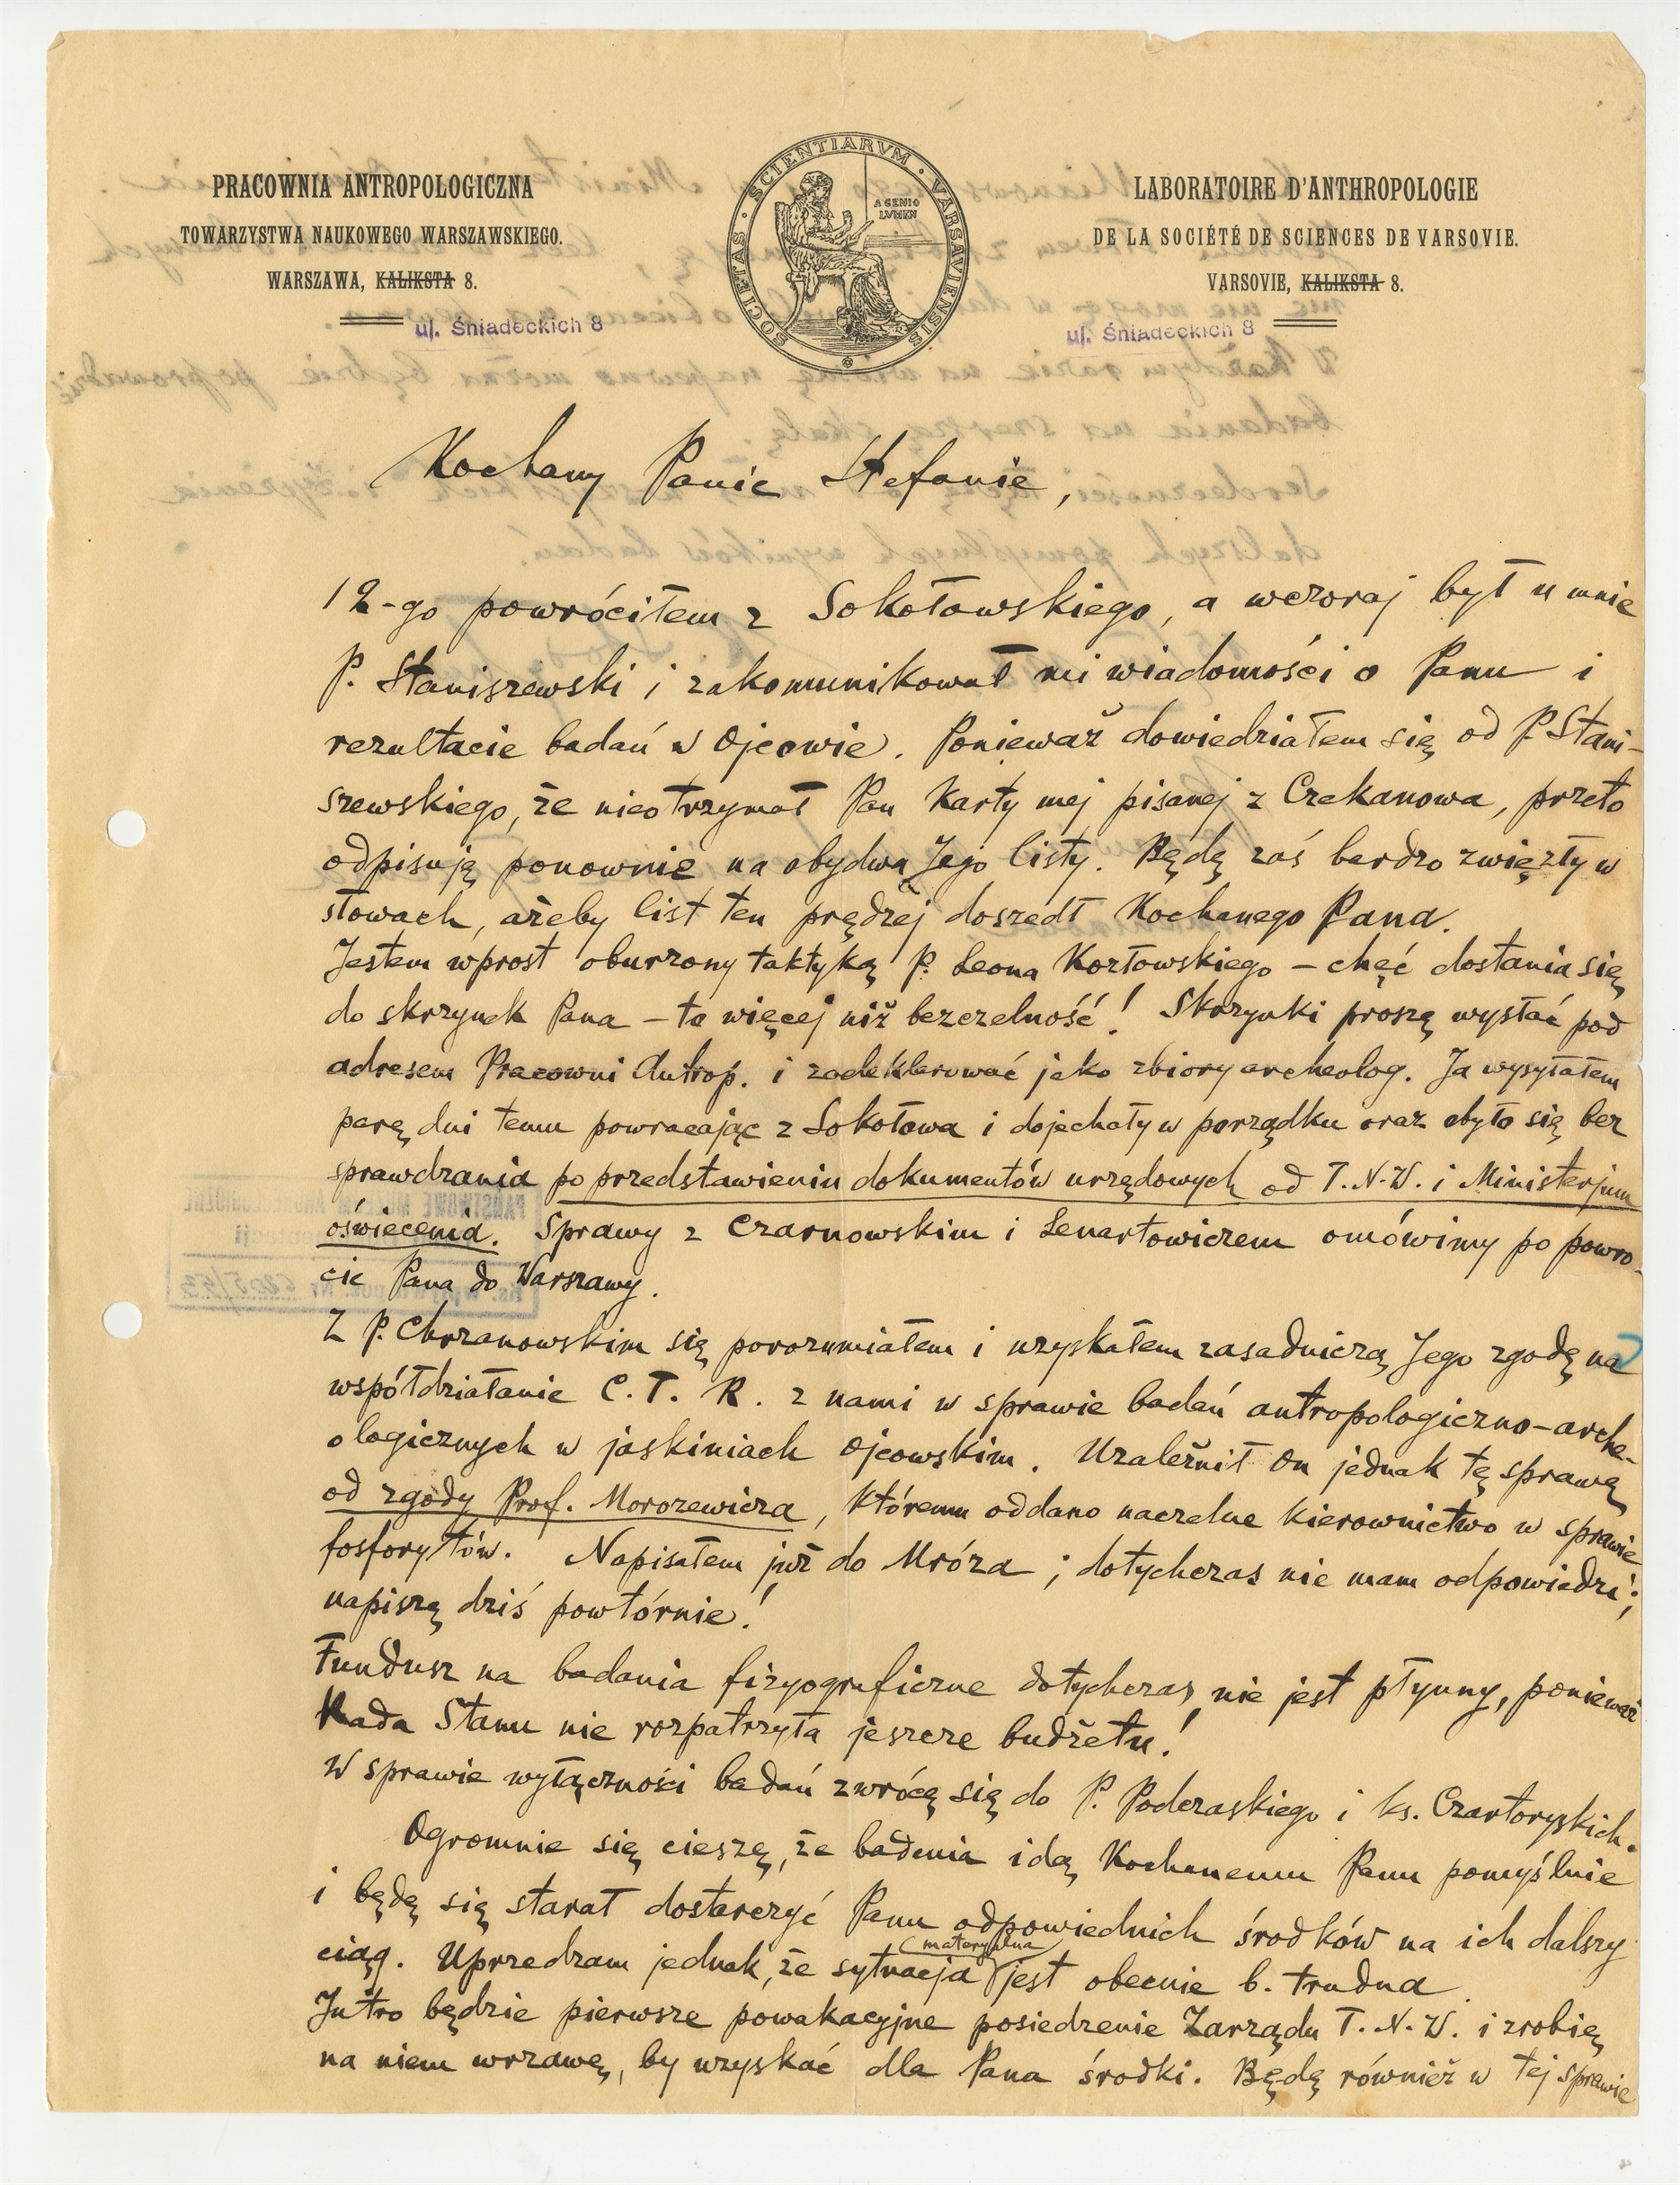 PRACOWNIA ANTROPOLOGICZNA
TOWARZYSTWA NAUKOWEGO WARSZAWSKIEGO.
WARSZAWA, KALIKSTA 8.
ul. Śniadeckich 8
SOCIETAS · SCIENTIARVM · VARSAVIENSIS
A GENIO
LVMEN
LABORATOIRE D'ANTHROPOLOGIE
DE LA SOCIÉTÉ DE SCIENCES DE VARSOVIE.
VARSOVIE, KALIKSTA 8.
ul. Śniadeckich 8
Kochany Panie Stefanie,
12-go powróciłem z Sokołowskiego, a wczoraj był u mnie
P. Staniszewski i zakomunikował mi wiadomości o Panu i
rezultacie badań w Ojcowie. Ponieważ dowiedziałem się od P. Stani-
szewskiego, że nieotrzymał Pan Karty mej pisanej z Czekanowa, przeto
odpisuję ponownie na obydwa Jego listy. Będę zaś bardzo zwięzły w
słowach, ażeby list ten prędzej doszedł Kochanego Pana.
Jestem wprost oburzony taktyką P. Leona Kozłowskiego – chęć dostania się
do skrzynek Pana – to więcej niż bezczelność! Skrzynki proszę wysłać pod
adresem Pracowni Antrop. i zadeklarować jako zbiory archeolog. Ja wysyłałem
parę dni temu powracając z Sokołowa i dojechały w porządku oraz obyło się bez
sprawdzania po przedstawieniu dokumentów urzędowych od T.N.W. i Ministerjum
oświecenia. Sprawy z Czarnowskim i Lenartowiczem omówimy po powro-
cie Pana do Warszawy.
Z P. Chrzanowskim się porozumiałem i uzyskałem zasadniczą Jego zgodę na
współdziałanie C. T. R. z nami w sprawie badań antropologiczno-arche-
ologicznych w jaskiniach Ojcowskim. Uzależnił On jednak tę sprawę
od zgody Prof. Morozewicza, któremu oddano naczelne kierownictwo w sprawie
fosforytów. Napisałem już do Mroza; dotychczas nie mam odpowiedzi;
napiszę dziś powtórnie!
Fundusz na badania fizyograficzne dotychczas nie jest płynny, ponieważ
Rada Stanu nie rozpatrzyła jeszcze budżetu!
W sprawie wyłączności badań zwrócę się do P. Podczaskiego i ks. Czartoryskich.
Ogromnie się cieszę, że badania idą Kochanemu Panu pomyślnie
i będę się starał dostarczyć Panu odpowiednich środków na ich dalszy
ciąg. Uprzedzam jednak, że sytuacja (materyalna) jest obecnie b. trudna.
Jutro będzie pierwsze powakacyjne posiedzenie Zarządu T.N.W. i zrobię
na niem wrzawę, by uzyskać dla Pana środki. Będę również w tej sprawie